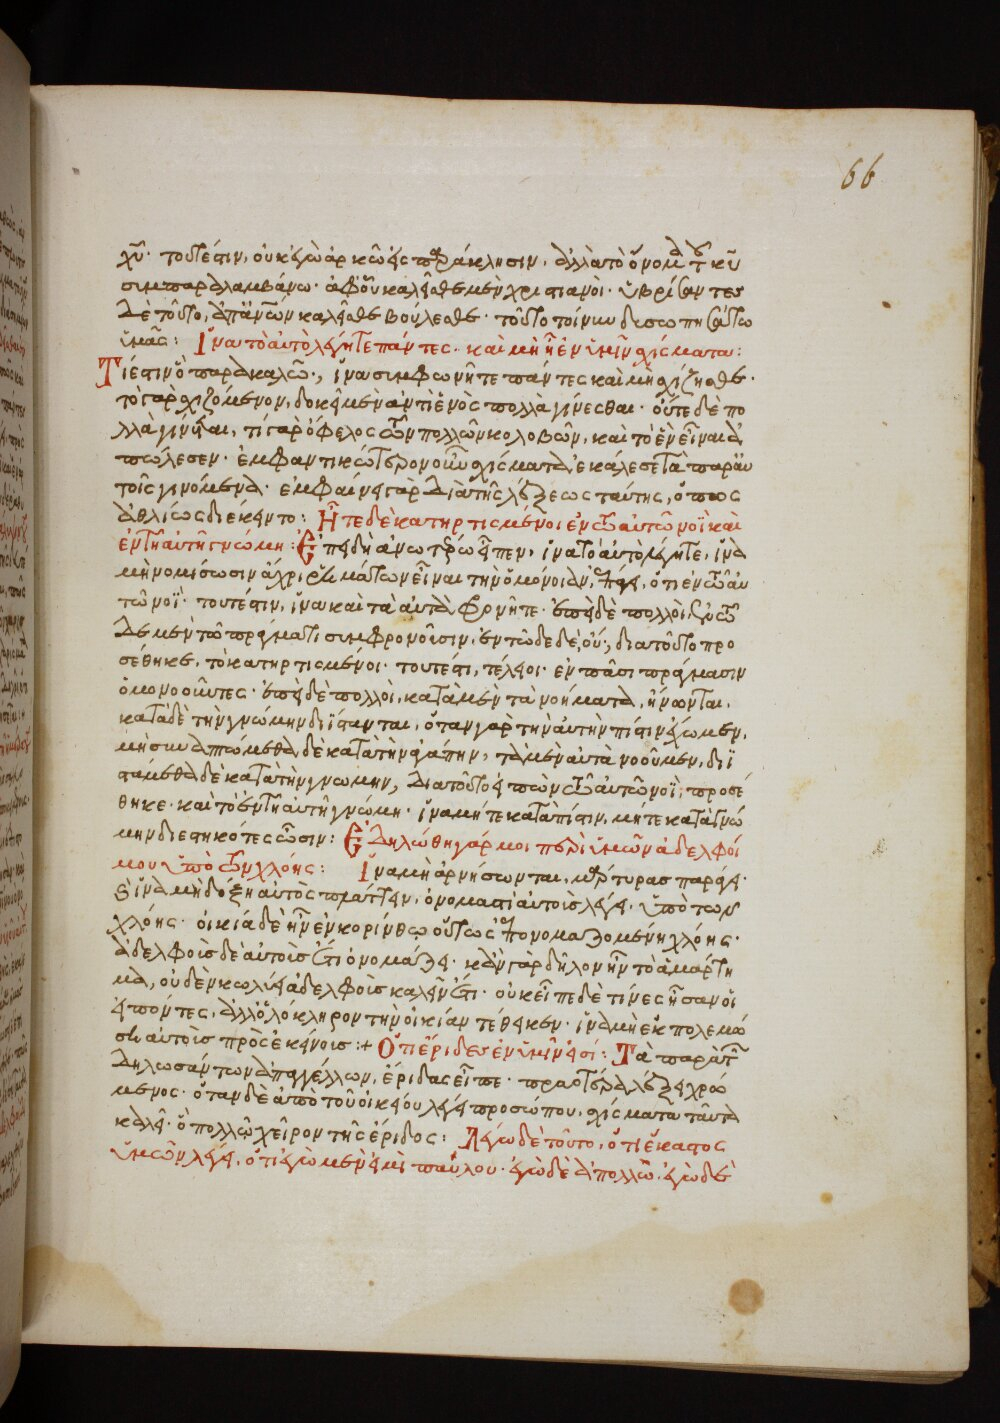 66
χῦ· τουτέστιν, οὐκ ἐγὼ ἀρκῶ εἰς παράκλησιν, ἀλλὰ τὸ ὄνομα τοῦ κῦ
συμπαραλαμβάνω· ἀφ οὗ καλεῖσθε μὲν χριστιανοι· ὑβρίσαντες
δὲ τοῦτο, ἀπ ἄνων καλεῖσθε βούλεσθε· τοῦτο τοίνυν δυσωπησάτω
ὑμᾶς: Ἵνα τὸ αὐτὸ λέγητε πάντες· καὶ μὴ ἦ ἐν ὑμῖν σχίσματα:
Τί ἐστιν ὃ παρακαλῶ·, ἵνα συμφωνῆτε πάντες καὶ μὴ σχίζησθε·
τὸ γὰρ σχιζόμενον, δοκεῖ μὲν ἀντὶ ἑνὸς πολλὰ γίνεσθαι· οὔτε δὲ πο
λλὰ γίνεται, τί γὰρ ὄφελος τῶν πολλῶν κολοβῶν, καὶ τὸ ἓν εἶναι ἀ
πώλεσεν· ἐμφαντικώτερον οὖν σχίσματα ἐκάλεσε τὰ παρ αὐ
τοῖς γινόμενα· ἐμφαίνει γὰρ διὰ τῆς λέξεως ταύτης, ὅπως
ἀθλίως διέκειντο: Ἦτε δὲ κατηρτισμένοι ἐν τῶ αὐτῶ νοῒ καὶ
ἐν τῆ αὐτῆ γνώμη: Ἐπειδὴ ἀνωτέρω εἶπεν, ἵνα τὸ αὐτὸ λέγητε, ἵνα
μὴ νομίσωσιν ἄχρι ῥημάτων εἶναι τὴν ὁμόνοιαν, λέγει, ὅτι ἐν τῶ αὐ
τῶ νοῒ· τουτέστιν, ἵνα καὶ τὰ αὐτὰ φρονῆτε· ἐπειδὲ πολλοὶ ἐν τῶ
δε μὲν τῶ πράγματι συμφρονοῦσιν, ἐν τῶδε δέ, οὔ·, διὰ τοῦτο προ
σέθηκε, τὸ κατηρτισμένοι· τουτέστι, τέλειοι· ἐν πᾶσι πράγμασιν
ὁμονοοῦντες· ἐπειδὲ πολλοὶ, κατὰ μὲν τὰ νοήματα, ἥνωνται,
κατὰ δὲ τὴν γνώμην διΐστανται, ὅταν γὰρ τὴν αὐτὴν πίστιν ἔχωμεν,
μὴ συναπτώμεθα δὲ κατὰ τὴν ἀγάπην, τὰ μὲν αὐτὰ νοοῦμεν, διϊ
στάμεθα δὲ κατὰ τὴν γνώμην, διὰ τοῦτο εἰπὼν ἐν τῶ αὐτῶ νοῒ, προσέ
θηκε· καὶ τὸ ἐν τῆ αὐτῆ γνώμη· ἵνα μήτε κατὰ πίστιν, μήτε κατὰ γνώ
μην διεστηκότες ὦσιν: Ἐδηλώθη γάρ μοι περὶ ὑμῶν ἀδελφοί
μου ὑπὸ τῶν χλόης: Ἵνα μὴ ἀρνήσωνται, μάρτυρας παράγει·
ἵνα μὴ δόξη αὐτὸς πράττειν, ὀνομαστὶ αὐτοὶς λέγει· ὑπὸ τῶν
χλόης· οἰκία δὲ ἦν ἐν κορίνθω οὕτως ἐπονομαζομένη χλόης·
ἀδελφοὺς δὲ αὐτοὺς ἔτι ὀνομάζει· κἂν γὰρ δῆλον ἦν τὸ ἁμάρτη
μα, οὐδὲν κωλύει ἀδελφοὺς καλεῖν ἔτι· οὐκ εἶπε δὲ τίνες ἦσαν οἱ
εἰπόντες, ἀλλ ὁλόκληρον τὴν οἰκίαν τέθεικεν· ἵνα μὴ ἐκπολεμώ
ση αὐτοὺς πρὸς ἐκείνοις:+ Ὅτι ἔριδες ἐν ὑμῖν εἰσί: Τὰ παρὰ τῶν
δηλωσάντων ἀπαγέλλων, ἔριδας εἶπε· πραοτέρα λέξει χρώ
μενος· ὅταν δὲ ἀπὸ τοῦ οἰκείου λέγει προσώπου, σχίσματα ταῦτα
καλεῖ· ὃ πολλῶ χεῖρον τῆς ἔριδος: Λέγω δὲ τοῦτο, ὅτι ἕκαστος
ὑμῶν λέγει, ὅτι ἐγὼ μὲν εἰμὶ παύλου· ἐγὼ δὲ ἀπολλῶ, ἐγὼ δὲ